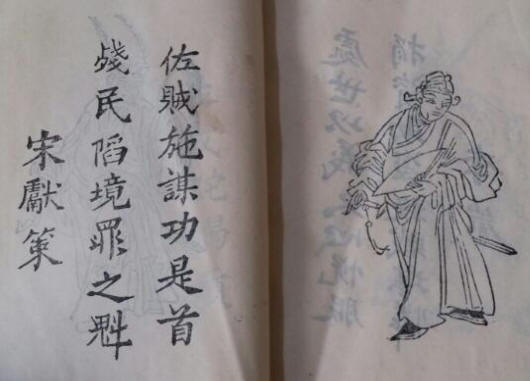 佐賊施謀功是首
殘民陷境罪之魁
宋獻策